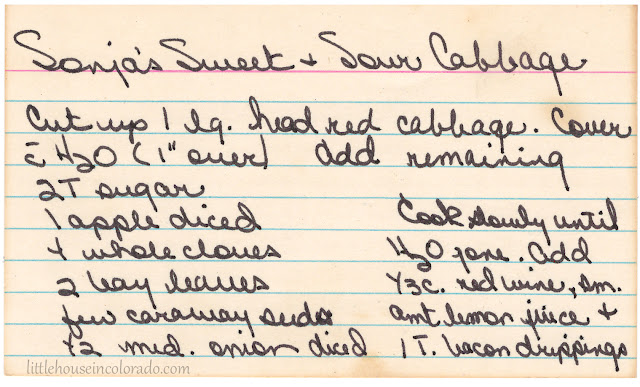 Sonja's Sweet + Sour Cabbage
Cut up 1 lg. head red cabbage. Cover
c̄ H2O (1" over) Add remaining
2T sugar
1 apple diced
4 whole cloves
2 bay leaves
few caraway seeds
1/2 med. onion diced
Cook slowly until
H2O gone. Add
1/3 c. red wine, sm.
amt. lemon juice +
1 T. bacon drippings
littlehouseincolorado.com